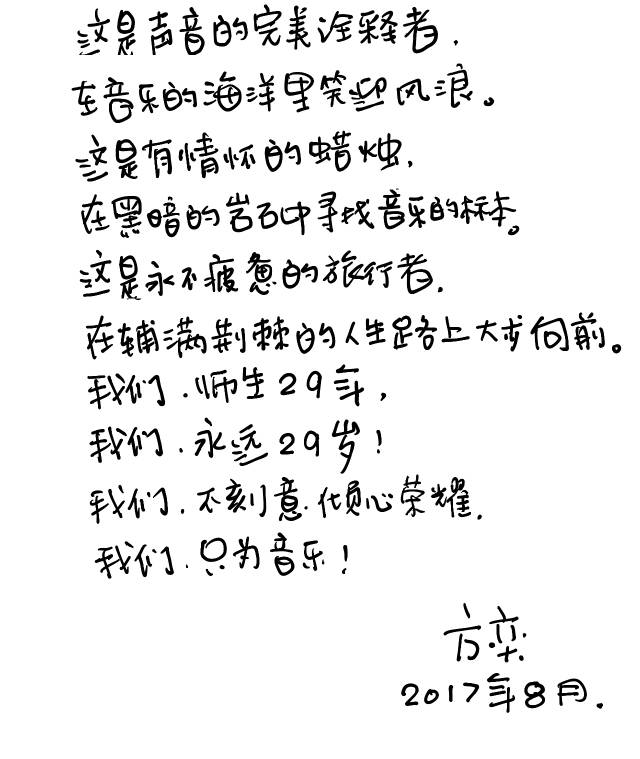 这是声音的完美诠释者,
在音乐的海洋里笑迎风浪。
这是有情怀的蜡烛,
在黑暗的岩石中寻找音乐的标本。
这是永不疲惫的旅行者.
在铺满荆棘的人生路上大步向前。
我们.师生29年,
我们.永远29岁!
我们.不刻意.倾心荣耀.
我们.只为音乐!
2017年8月.